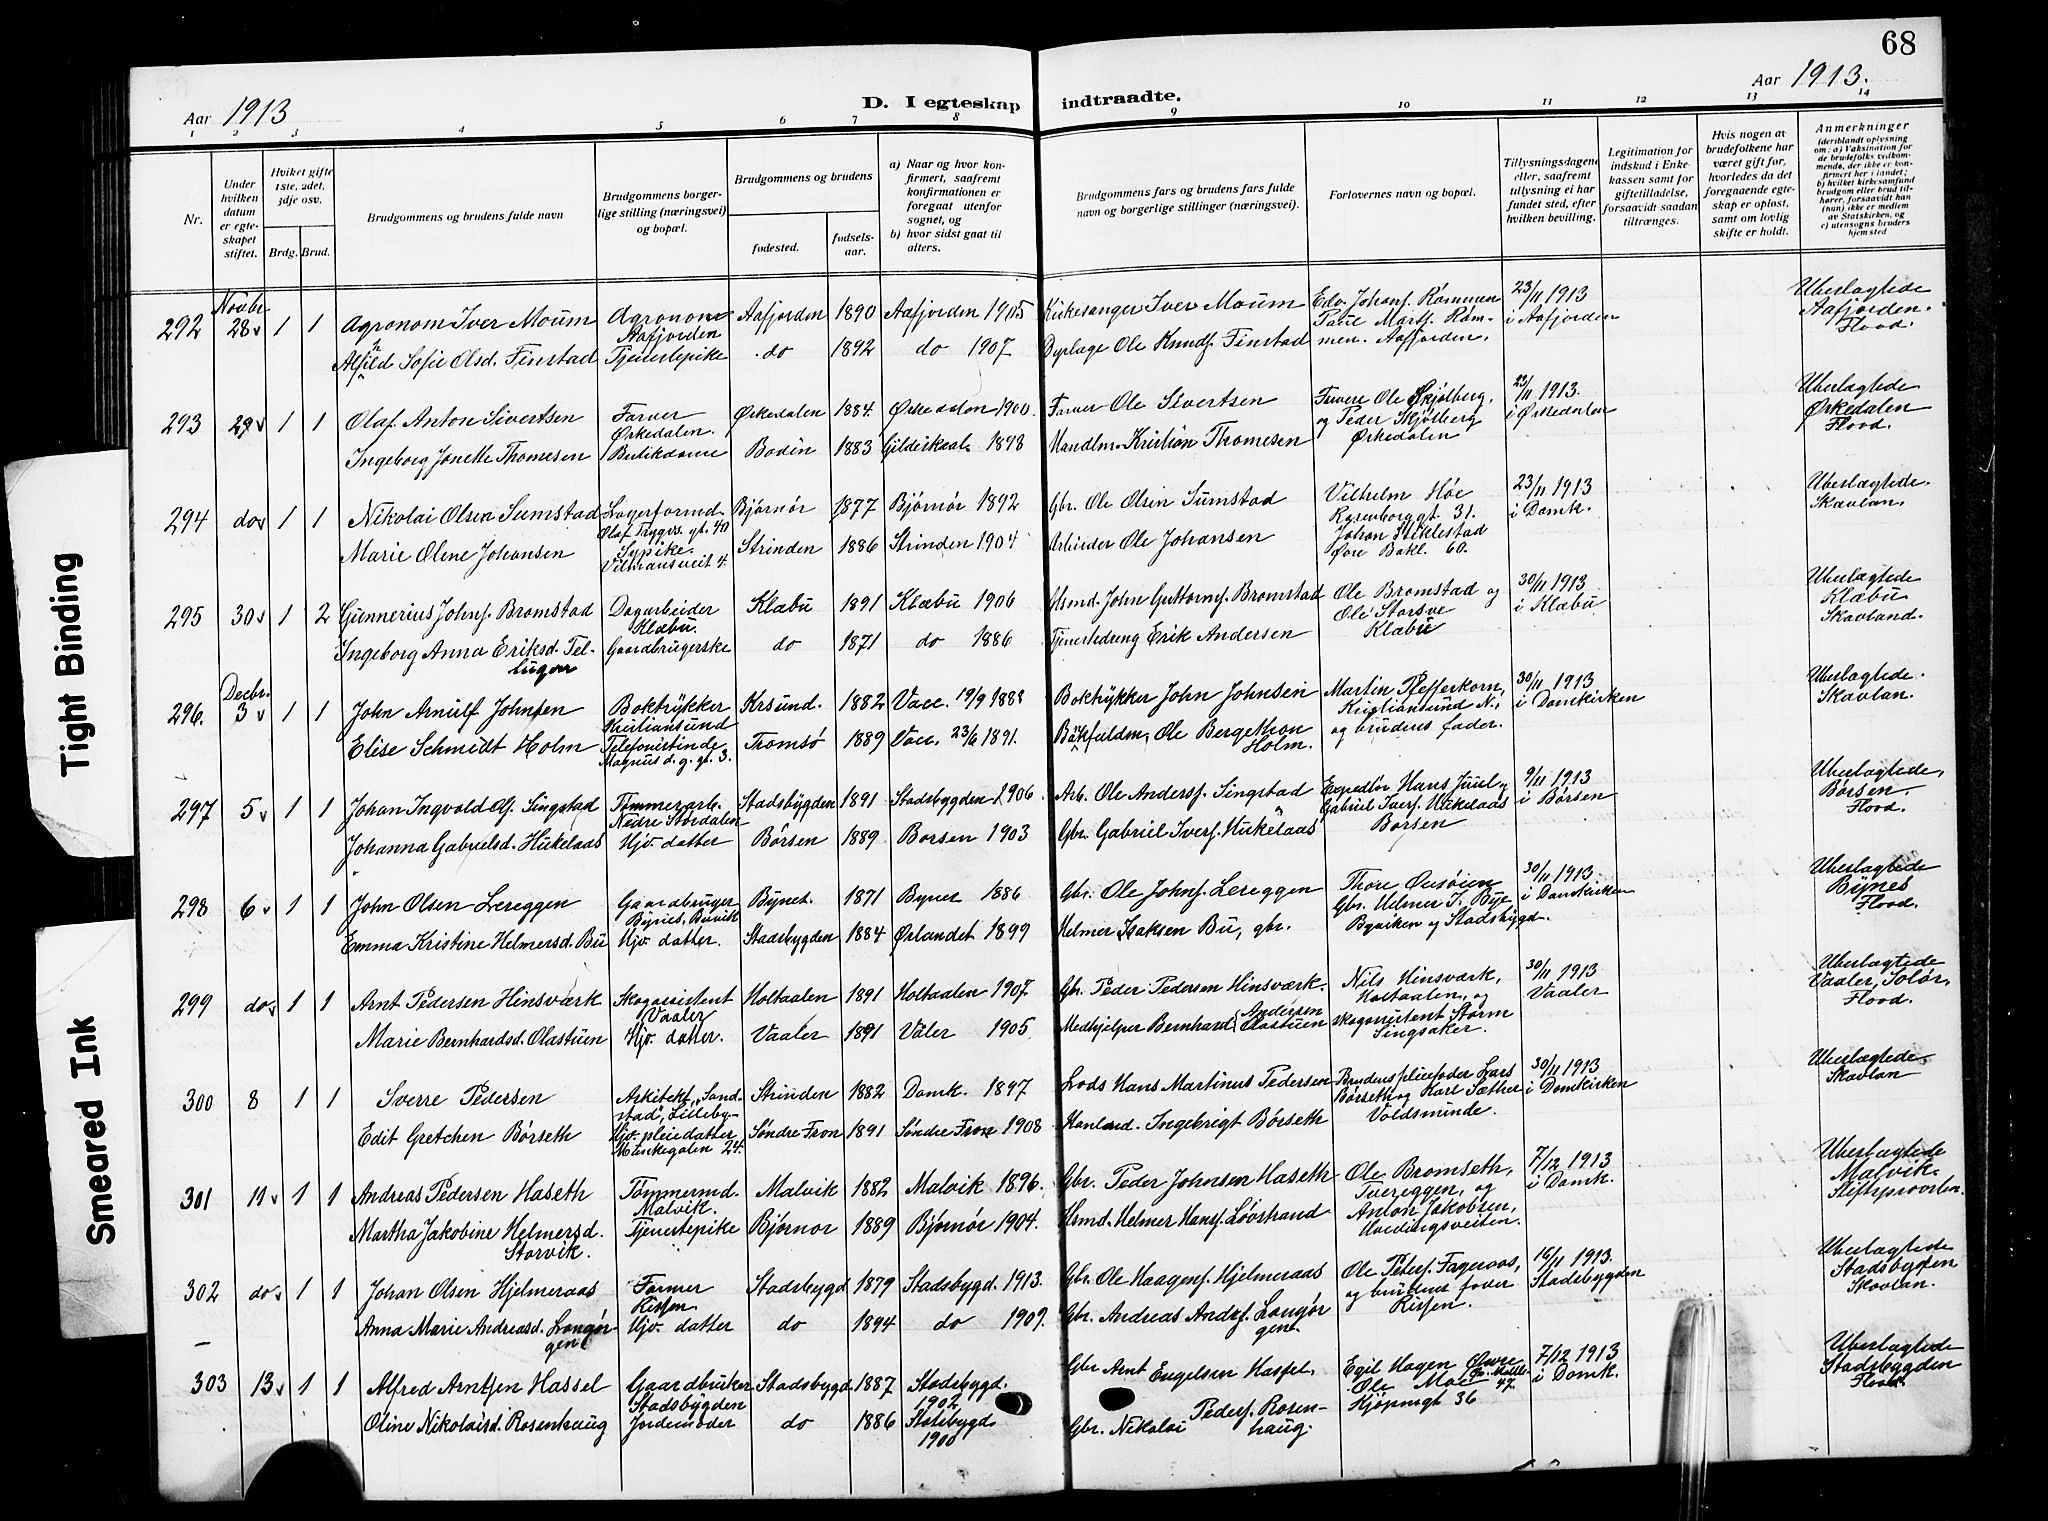 68
Aar 1913
D. I egteskap indtraadte.
Aar 1913.
1 2 3 4 5 6 7 8 9 10 11 12 13 14
Nr.
Under hvilken datum er egteskapet stiftet.
Hvilket gifte 1ste, 2det, 3dje osv.
Brdg. Brud.
Brudgommens og brudens fulde navn
Brudgommens borgerlige stilling (næringsvei) og bopæl.
Brudgommens og brudens
fødested.
fødselsaar.
a) Naar og hvor konfirmert, saafremt konfirmationen er foregaat utenfor sognet, og
b) hvor sidst gaat til alters.
Brudgommens fars og brudens fars fulde navn og borgerlige stillinger (næringsvei).
Forlovernes navn og bopæl.
Tillysningsdagene eller, saafremt tillysning ei har fundet sted, efter hvilken bevilling.
Legitimation for indskud i Enkekassen samt for giftetilladelse, forsaavidt saadan tiltrænges.
Hvis nogen av brudefolkene har været gift før, hvorledes da det foregaaende egteskap er opløst, samt om lovlig skifte er holdt.
Anmerkninger (deriblandt oplysning om: a) Vaksination for de brudefolks vedkommende, der ikke er konfirmert her i landet; b) hvilket kirkesamfund brudgom eller brud tilhører, forsaavidt han (hun) ikke er medlem av Statskirken, og c) utensogns bruders hjemsted
292 Novbr 28 1 1 Agronom Iver Moum Agronom Aafjorden Aafjorden 1890 Aafjorden 1905 Kirkesanger Iver Moum Edv. Johans. Rømmen Paul Marts. Rømmen. Aafjorden. 23/11 1913 i Aafjorden Uberlagtede Aafjorden. Flood.
Alfhild Sofie Olsd. Finstad Tjenestepike do 1892 do 1907 Dyrlæge Ole Knuds. Finstad
293 29 1 1 Olaf Anton Sivertsen Farver Ørkedalen. Ørkedalen 1884 Ørkedalen 1900. Farver Ole Sivertsen Farvere Ole Skjølberg, og Peder Skjølberg Ørkedalen 23/11 1913. i Ørkedalen Uberlagtede Ørkedalen Flood.
Ingeborg Jonette Thomesen Butikdame Bodin 1883 Gildeskaal. 1898 Handlm. Kristian Thomesen
294 do 1 1 Nikolai Olsen Sumstad Lagerformd. Olaf Tryggvs. gt. 40 Bjørnør 1877 Bjørnør 1892 Gbr. Ole Olsen Sumstad Vilhelm Høe Rosenborggt. 31. Johan Stiklestad Øvre Bakl. 60. 23/11 1913 i Domk. Uberlagtede. Skavlan.
Marie Oline Johansen Sypike. Vilmansveit 4. Strinden 1886 Strinden 1904 Arbeider Ole Johansen
295 30 1 2 Gunnerius Johns. Bromstad Dagarbeider Klæbu. Klæbu 1891 Klæbu 1906 Hsmd. John Guttorms. Bromstad Ole Bromstad og Ole Storsve Klæbu 30/11 1913 i Klæbu Uberlagtede Klæbu Skavland.
Ingeborg Anna Eriksd. Tellugen Gaardbrugerske do 1871 do 1886 Tjenestedreng Erik Andersen
296. Decbr. 3 1 1 John Arnulf Johnsen Boktrykker Kristiansund Krsund. 1882 Vacc. 19/9 1888 Boktrykker John Johnsen Martin Pfefferkorn, Kristiansund N., og brudens fader. 30/11 1913 i Domkirken Uberlagtede. Skavlan.
Elise Schmidt Holm Telefonistinde Magnus d. g. gt. 3. Tromsø 1889 Vacc. 23/6 1891. Ole Bergethon Holm.
297 5 1 1 Johan Ingvald Ols. Singstad Tømmerarb. Nedre Stordalen Stadsbygden 1891 Stadsbygden 1906. Arb. Ole Anders. Singstad Expeditør Hans Juul og Gabriel Ivers. Hukelaas Børsen 9/11 1913 i Børsen Uberlagtede, Børsen. Flood.
Johanna Gabrielsd. Hukelaas Hjv. datter Børsen 1889 Børsen 1903 Gbr. Gabriel Ivers. Hukelaas
298 6 1 1 John Olsen Lereggen Gaardbruger Bynes, Buvik Bynet. 1871 Bynet 1886 Gbr. Ole Johns. Lereggen Thore Øusøien Gbr. Helmer I. Bye Byviken og Stadsbygd. 30/11 1913 i Domkirken Uberlagtede Bynes Flood.
Emma Kristine Helmersd. Bu Hjv. datter. Stadsbygden 1884 Ørlandet 1899 Helmer Isaksen Bu, gbr.
299 do 1 1 Arnt Pedersen Hinsværk Skogassistent Vaaler Holtaalen 1891 Holtaalen 1907. Gbr. Peder Pedersen Hinsværk. Nils Hinsværk, Holtaalen, og skogassistent Storm Singsaker. 30/11 1913 Vaaler Uberlagtede Vaaler, Solør, Flood.
Marie Bernhardsd. Olastuen Hjv. datter. Vaaler 1891 Våler 1905 Medhjelper Bernhard Andersen Olastuen
300 8 1 1 Sverre Pedersen Arkitekt, Sandstad, Lilleby Strinden 1882 Domk. 1897 Lods Hans Martinus Pedersen Brudens pleiefader Lars Børseth og Karl Sæther Voldsminde. 30/11 1913 i Domkirken Uberlagtede. Skavlan
Edit Gretchen Børseth Hjv. pleiedatter Munkegaten 24. Søndre Fron 1891 Søndre Fron 1908 Ingebrigt Børseth
301 11 1 1 Andreas Pedersen Haseth Tømmermd. Malvik. Malvik 1882 Malvik 1896. Gbr. Peder Johnsen Haseth Ole Bromseth, Tvereggen, og Anton Jakobsen, Hvedingsveiten. 7/12 1913 i Domk. Uberlagtede Malvik. Stiftsprovsten.
Martha Jakobine Helmersd. Storvik. Tjenestepike Bjørnør 1889 Bjørnør 1904. Hsmd. Helmer Hans. Løvstrand
302 do 1 1 Johan Olsen Hjelmeraas Farmer Rissen. Stadsbygd 1879 Stadsbygd. 1913. Gbr. Ole Haagens. Hjelmeraas Ole Peters. Fageraas, og brudens fader Rissen. 16/11 1913. Stadsbygden Uberlagtede Stadsbygden Skavlan.
Anna Marie Andreasd. Langørgen Hjv. datter do 1894 do 1909. Gbr. Andreas Ands. Langørgen.
303 13 1 1 Alfred Arntsen Hassel Gaardbruker Stadsbygden Stadsbygd 1887 Stadsbygd. 1902 Gbr. Arnt Engelsen Hassel. Egil Hagen Øvre Ole Moe Kjøpmgt 36 7/12 1913 i Domk. Uberlagtede Stadsbygden Flood.
Oline Nikolaisd. Rosenhaug Jordemoder do 1886 Stadsbygd 1900 Gbr. Nikolai Peders. Rosenhaug.
Tight Binding
Smeared Ink